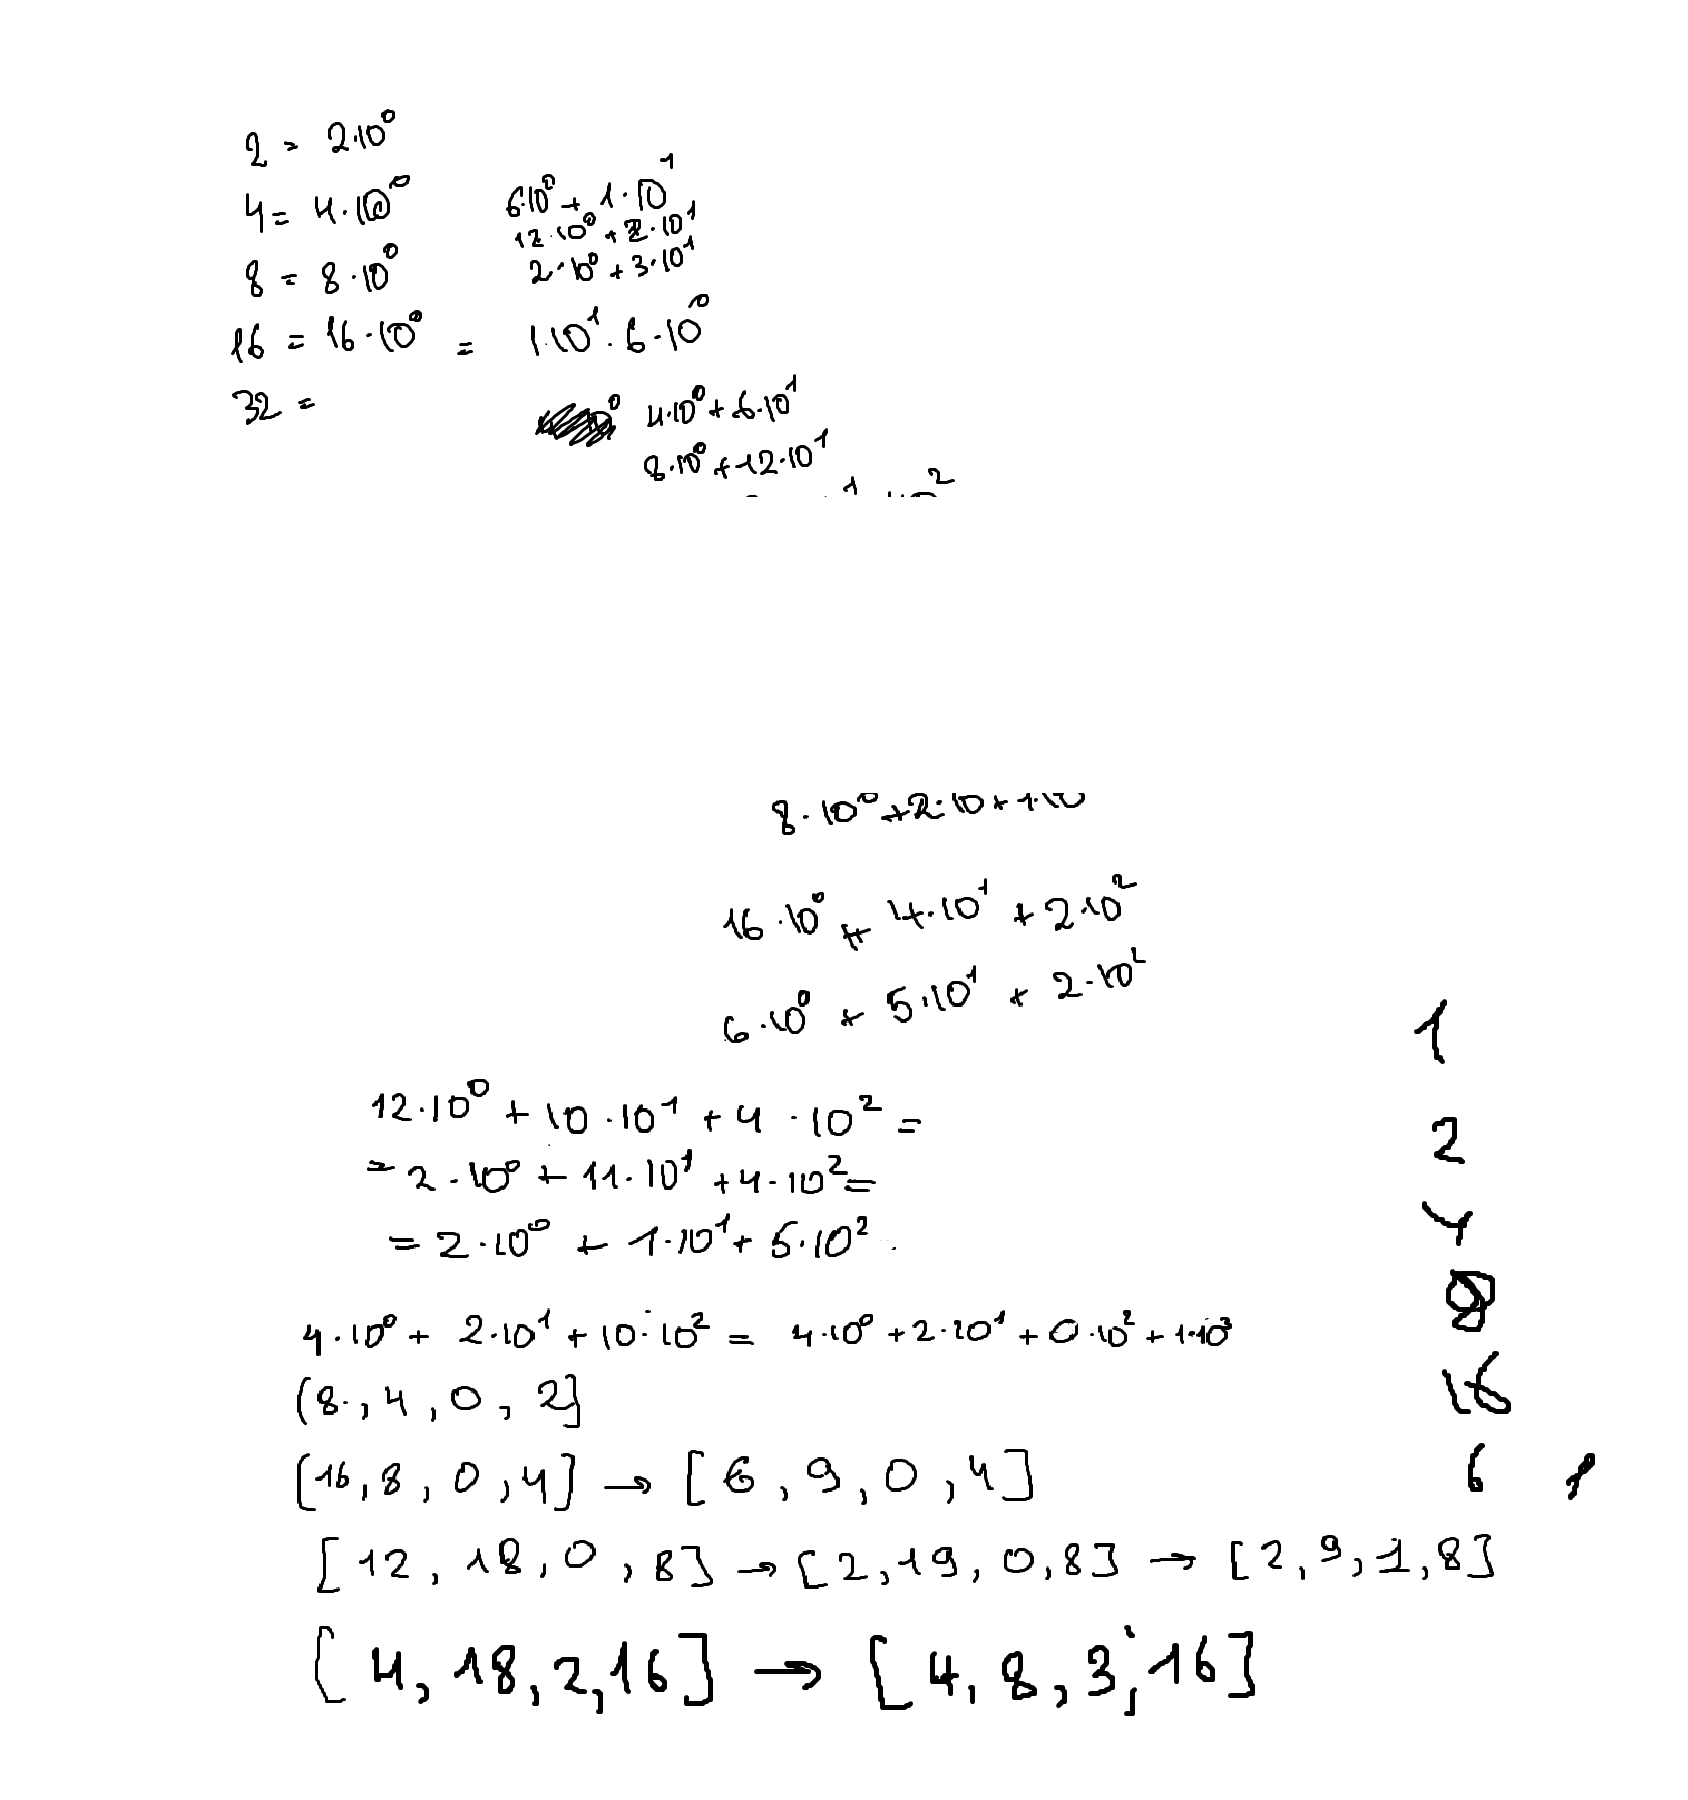 2 = 2·10⁰
4 = 4·10⁰
8 = 8·10⁰
16 = 16·10⁰ = 1·10¹·6·10⁰
32 =
6·10⁰ + 1·10¹
12·10⁰ + 2·10¹
2·10⁰ + 3·10¹
4·10⁰ + 6·10¹
8·10⁰ + 12·10¹
8·10⁰ + 2·10 + 1·10
16·10⁰ + 4·10¹ + 2·10²
6·10⁰ + 5·10¹ + 2·10²
12·10⁰ + 10·10¹ + 4·10² =
= 2·10⁰ + 11·10¹ + 4·10² =
= 2·10⁰ + 1·10¹ + 5·10².
4·10⁰ + 2·10¹ + 10·10² = 4·10⁰ + 2·10¹ + 0·10² + 1·10³
(8, 4, 0, 2]
[16, 8, 0, 4] → [6, 9, 0, 4]
[12, 18, 0, 8] → [2, 19, 0, 8] → [2, 9, 1, 8]
[4, 18, 2, 16] → [4, 8, 3, 16]
1
2
4
8
16
6